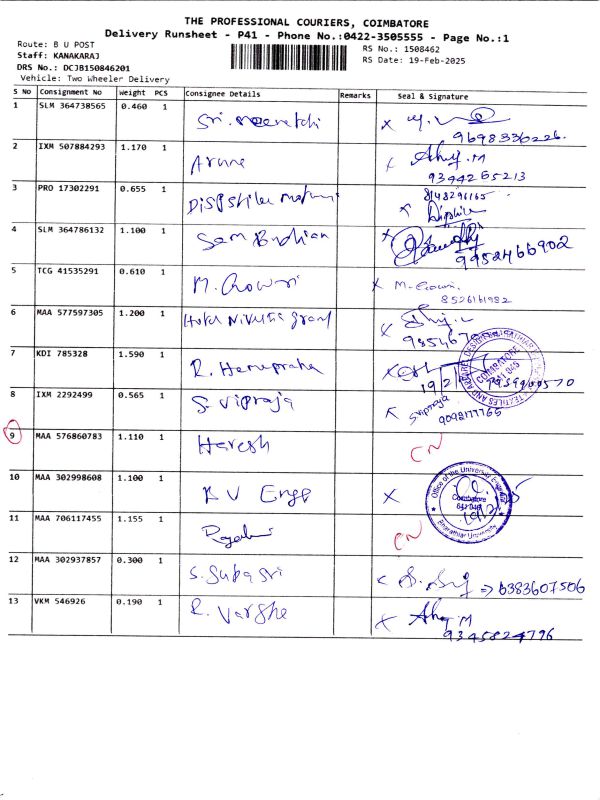 THE PROFESSIONAL COURIERS, COIMBATORE
Delivery Runsheet - P41 - Phone No.:0422-3505555 - Page No.:1
Route: B U POST
Staff: KANAKARAJ
DRS No.: DCJB150846201
Vehicle: Two Wheeler Delivery
RS No.: 1508462
RS Date: 19-Feb-2025
S No Consignment No Weight PCS Consignee Details Remarks Seal & Signature
1 SLM 364738565 0.460 1 Sri. x
9698336226.
2 IXM 507884293 1.170 1 x
9394265213
3 PRO 17302291 0.655 1 8148296165
x
4 SLM 364786132 1.100 1 x
9952466902
5 TCG 41535291 0.610 1 M. Gowri x M. Gowri
8526161982
6 MAA 577597305 1.200 1 Hotel x
7 KDI 785328 1.590 1 R. Hemapraha x
COIMBATORE
8 IXM 2292499 0.565 1 S. Vipraja x Sripraja
9098177765
9 MAA 576860783 1.110 1 Haresh CN
10 MAA 302998608 1.100 1 B U Engg x
Office of the University Engineer
Coimbatore
641 046
Bharathiar University
11 MAA 706117455 1.155 1 CN
12 MAA 302937857 0.300 1 S. Subasri => 6383607506
13 VKM 546926 0.190 1 R. Varshe x
9345824796